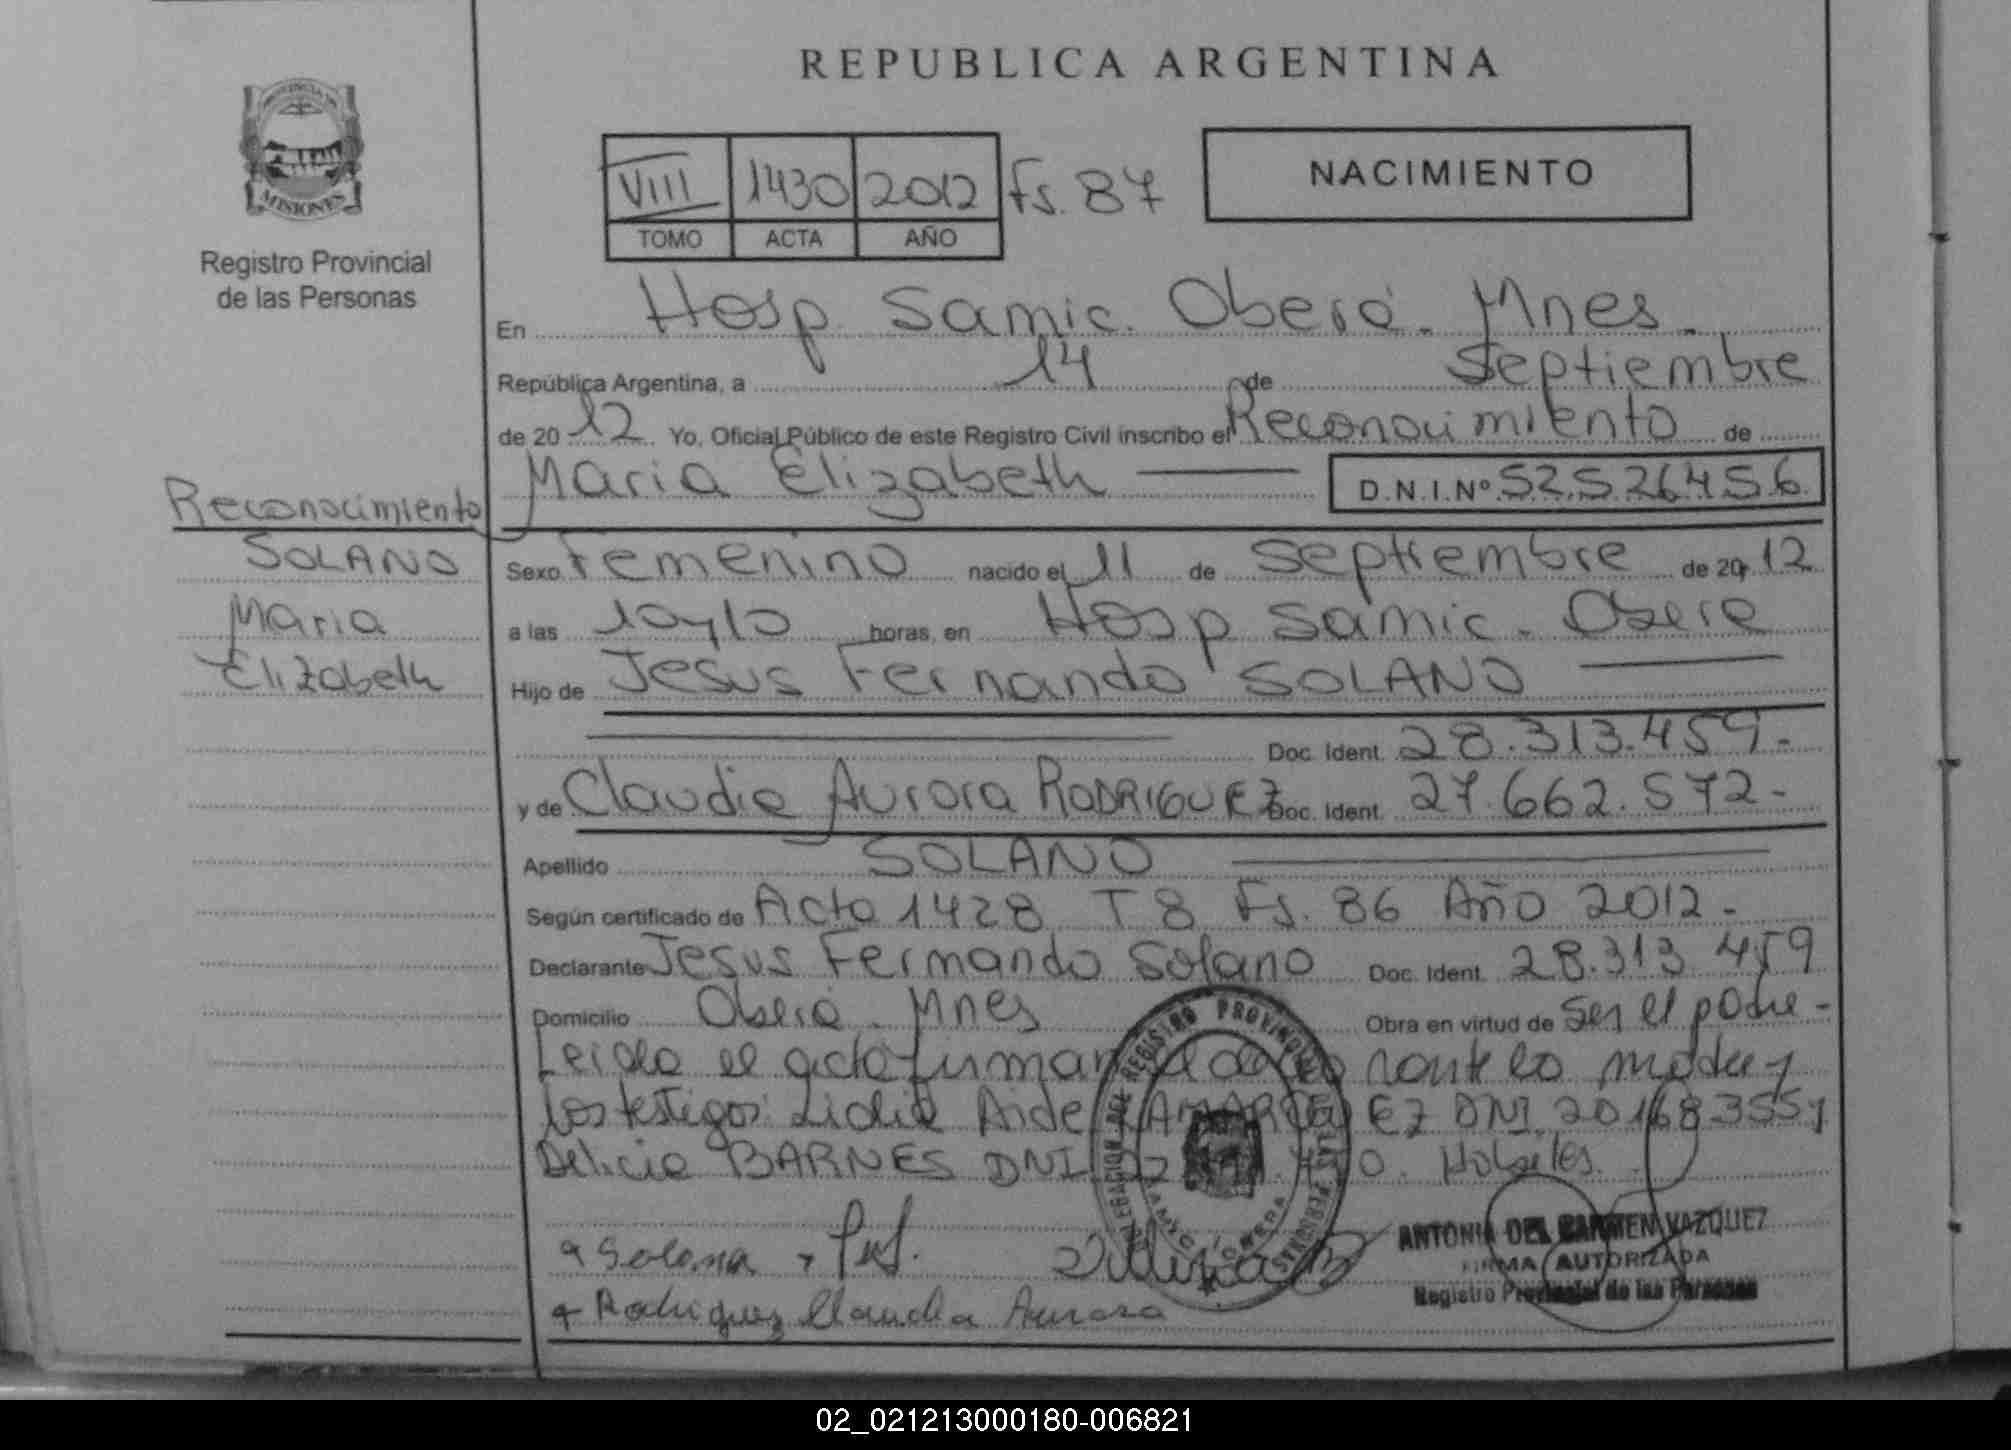 REPUBLICA ARGENTINA
PROVINCIA DE
MISIONES
Registro Provincial
de las Personas
VIII 1430 2012 Fs. 87
TOMO ACTA AÑO
NACIMIENTO
En Hosp. Samic. Oberá. Mnes.
República Argentina, a 14 de Septiembre
de 2012 Yo, Oficial Público de este Registro Civil inscribo el Reconocimiento de
Maria Elizabeth D.N.I.Nº 52526456
Reconocimiento
SOLANO
Maria
Elizabeth
Sexo Femenino nacido el 11 de Septiembre de 2012
a las 10y10 horas, en Hosp Samic. Oberá
Hijo de Jesus Fernando SOLANO
Doc. Ident. 28.313.459-
y de Claudia Aurora RODRIGUEZ Doc. Ident. 27.662.572-
Apellido SOLANO
Según certificado de Acta 1428 T 8 Fs. 86 Año 2012-
Declarante Jesus Fernando Solano Doc. Ident. 28.313 459
Domicilio Oberá. Mnes Obra en virtud de Ser el padre-
Leida el acta firman el la madre y
los testigos: Lidia Aide DNI. 20168355 y
Delicia BARNES DNI Hábiles.
DELEGACION DEL REGISTRO PROVINCIAL DE LAS PERSONAS
Solano
Rodriguez Claudia Aurora
ANTONIA DEL CARMEN VAZQUEZ
FIRMA AUTORIZADA
Registro Provincial de las Personas
02_021213000180-006821